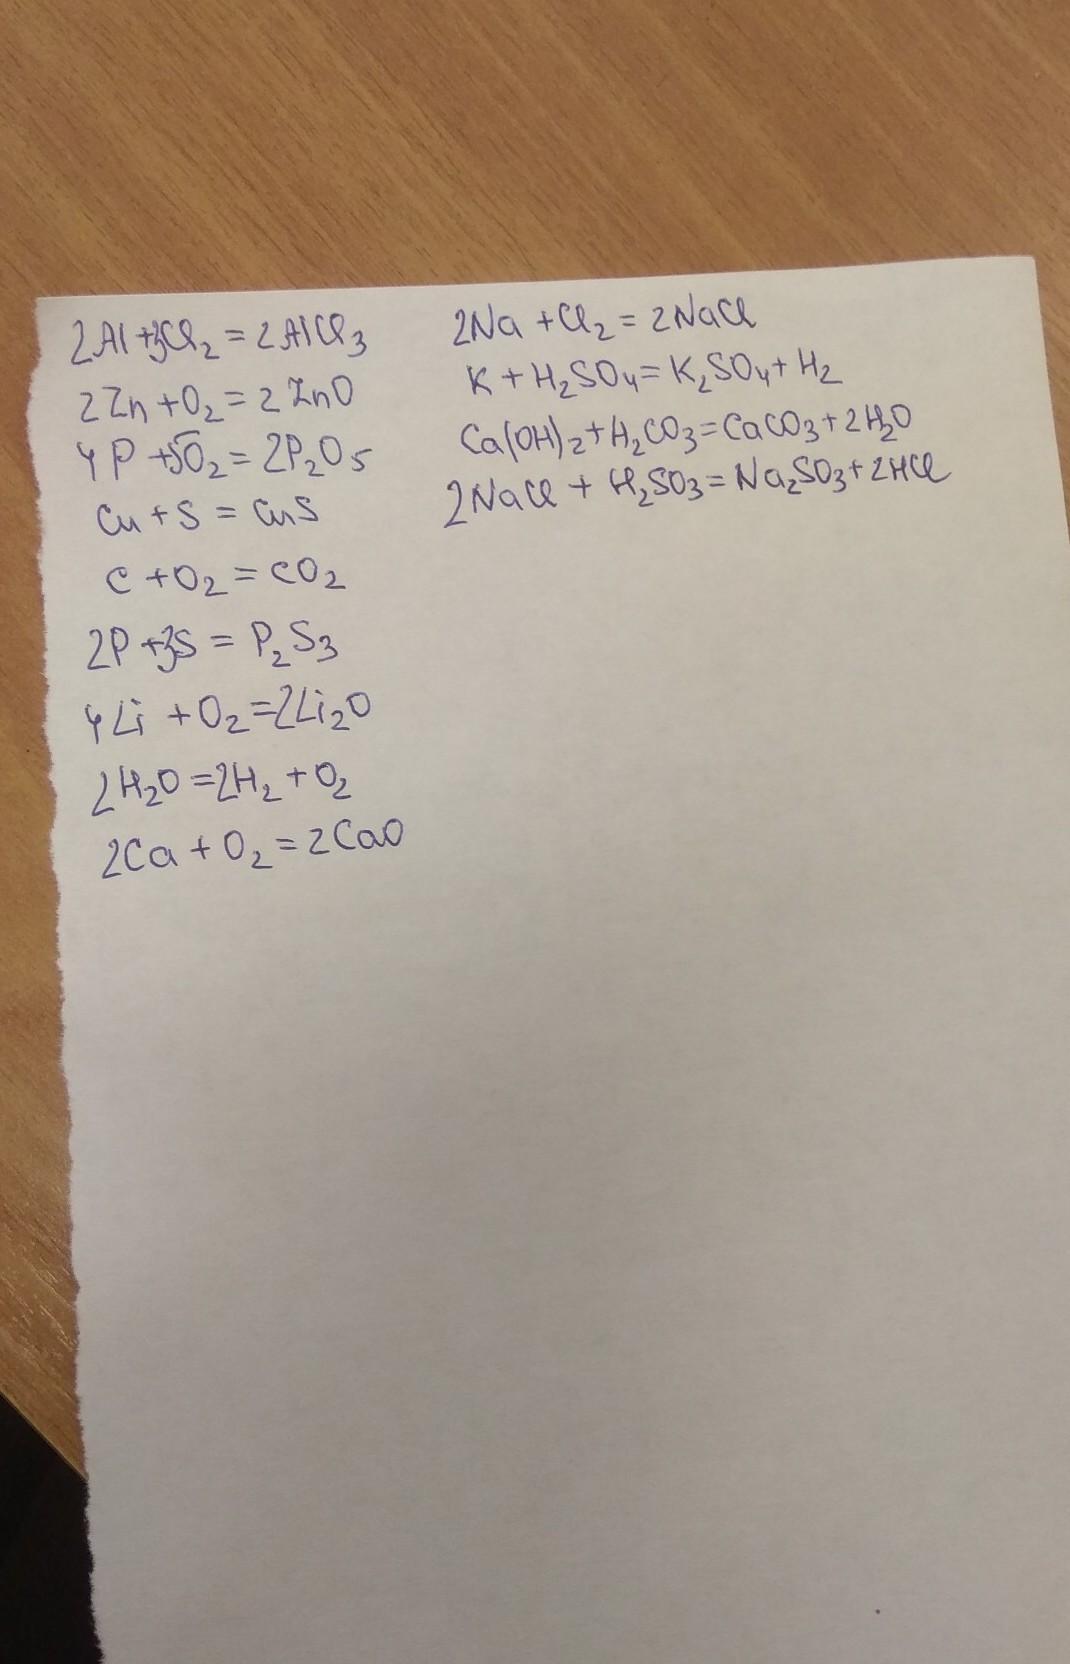 2Al+3Cl₂ = 2AlCl₃
2Zn+O₂ = 2ZnO
4P+5O₂ = 2P₂O₅
Cu+S = CuS
C+O₂ = CO₂
2P+3S = P₂S₃
4Li+O₂=2Li₂O
2H₂O=2H₂+O₂
2Ca+O₂=2CaO
2Na+Cl₂=2NaCl
K+H₂SO₄=K₂SO₄+H₂
Ca(OH)₂+H₂CO₃=CaCO₃+2H₂O
2NaCl+H₂SO₃=Na₂SO₃+2HCl